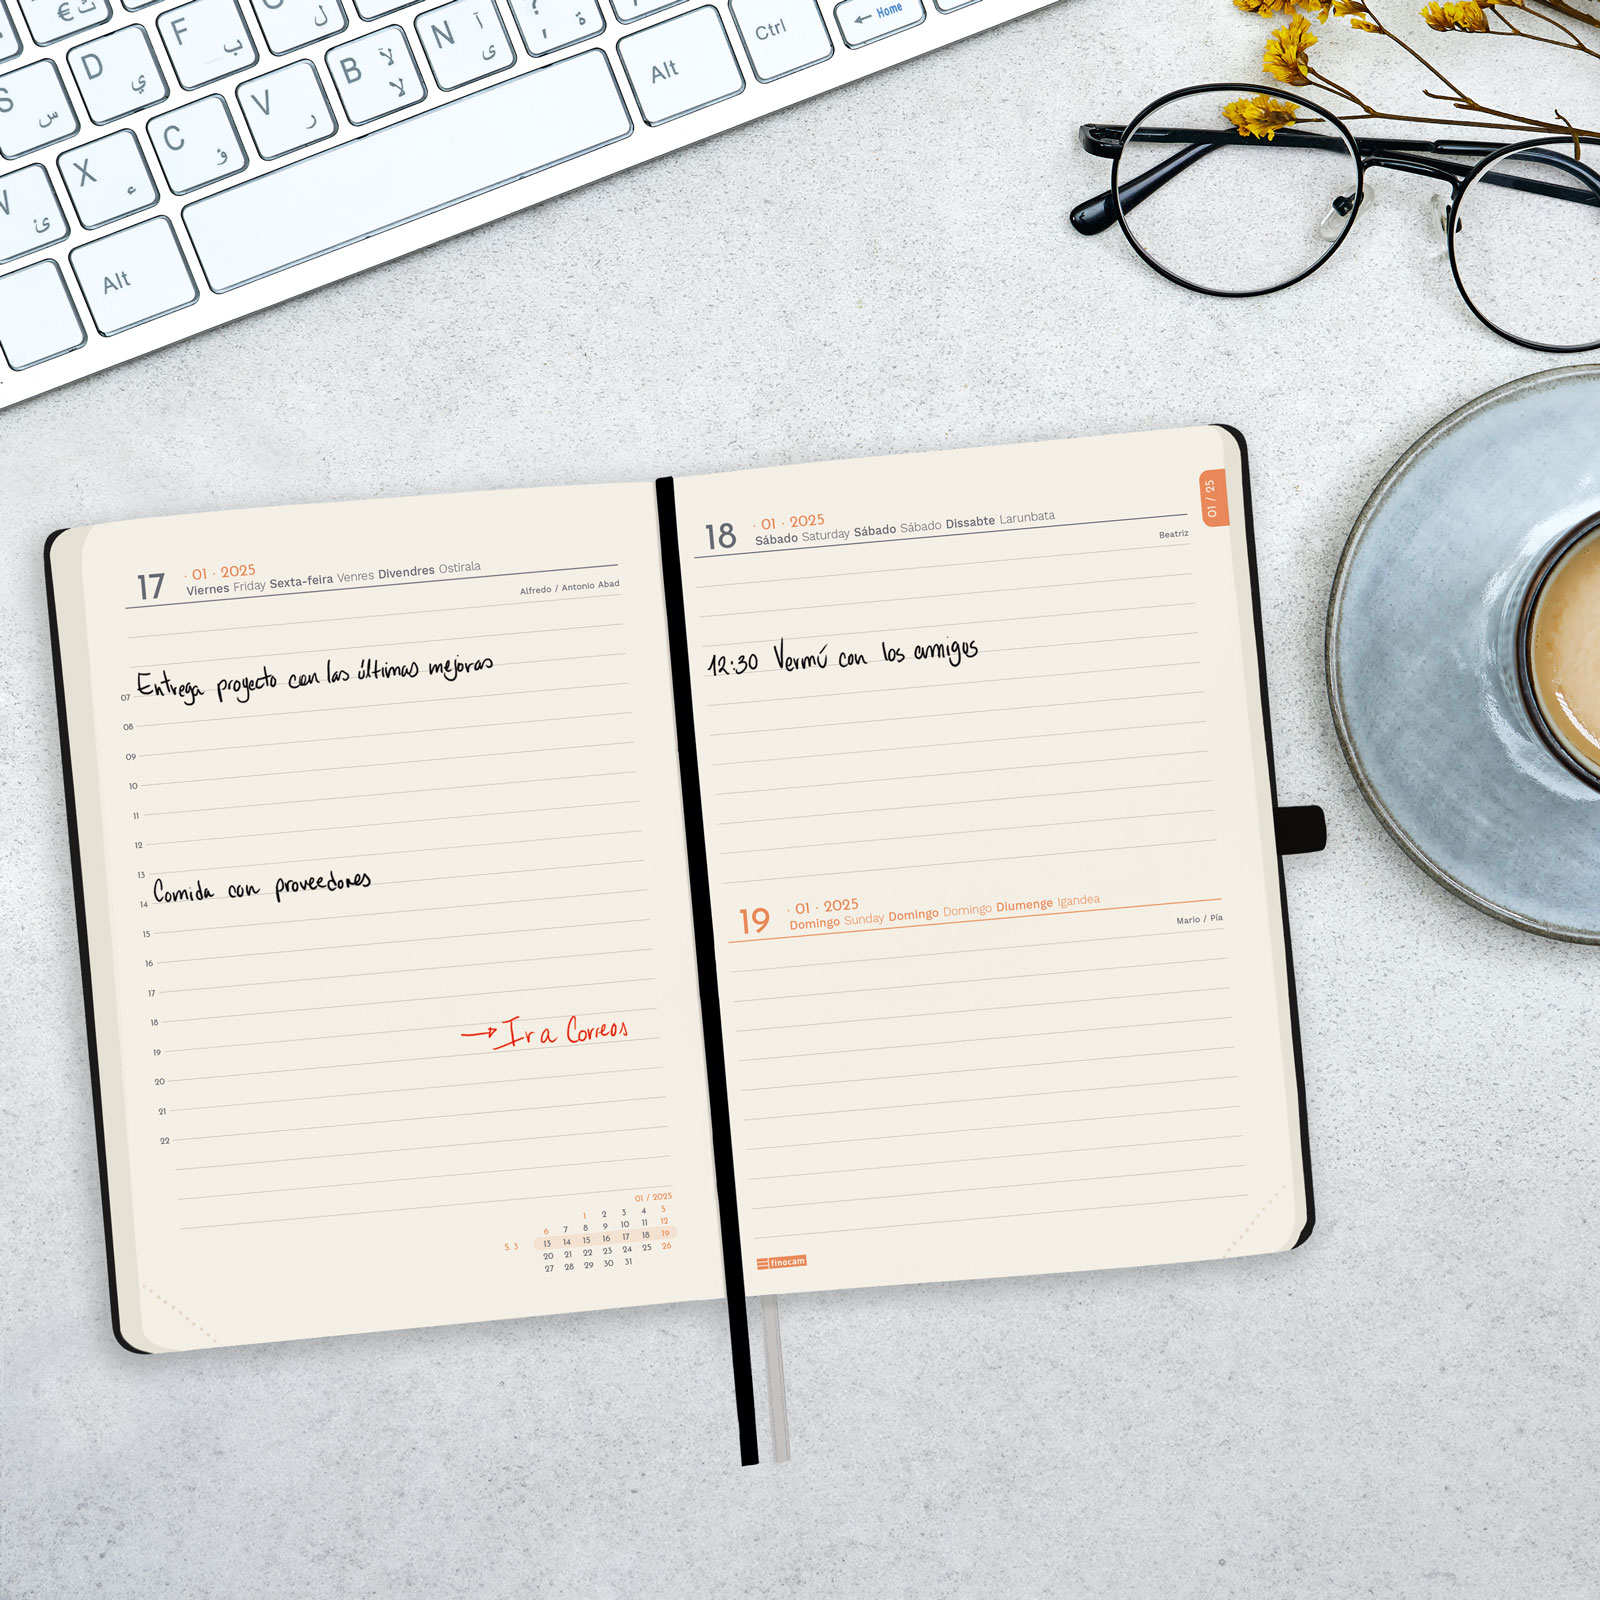 € ث
D ي
F ب
ل
S س
X ء
C ؤ
V ر
B لآ لا
N آ ى
؟ ة
Alt
Ctrl
← Home
ئ
Alt
17 · 01 · 2025
Viernes Friday Sexta-feira Venres Divendres Ostirala
Alfredo / Antonio Abad
Entrega proyecto con las últimas mejoras
07
08
09
10
11
12
13
Comida con proveedores
14
15
16
17
18
→ Ir a Correos
19
20
21
22
01 / 2025
1 2 3 4 5
6 7 8 9 10 11 12
S. 3 13 14 15 16 17 18 19
20 21 22 23 24 25 26
27 28 29 30 31
01 / 25
18 · 01 · 2025
Sábado Saturday Sábado Sábado Dissabte Larunbata
Beatriz
12:30 Vermú con los amigos
19 · 01 · 2025
Domingo Sunday Domingo Domingo Diumenge Igandea
Mario / Pía
finocam